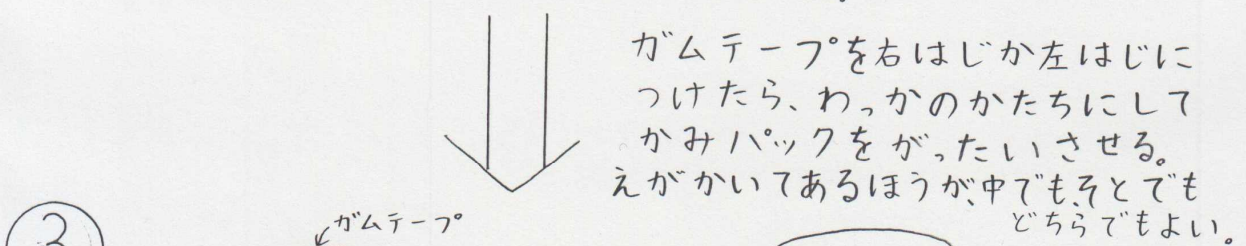 ガムテープを右はじか左はじに
つけたら、わっかのかたちにして
かみパックをがったいさせる。
えがかいてあるほうが、中でも、そとでも
どちらでもよい。
3
ガムテープ